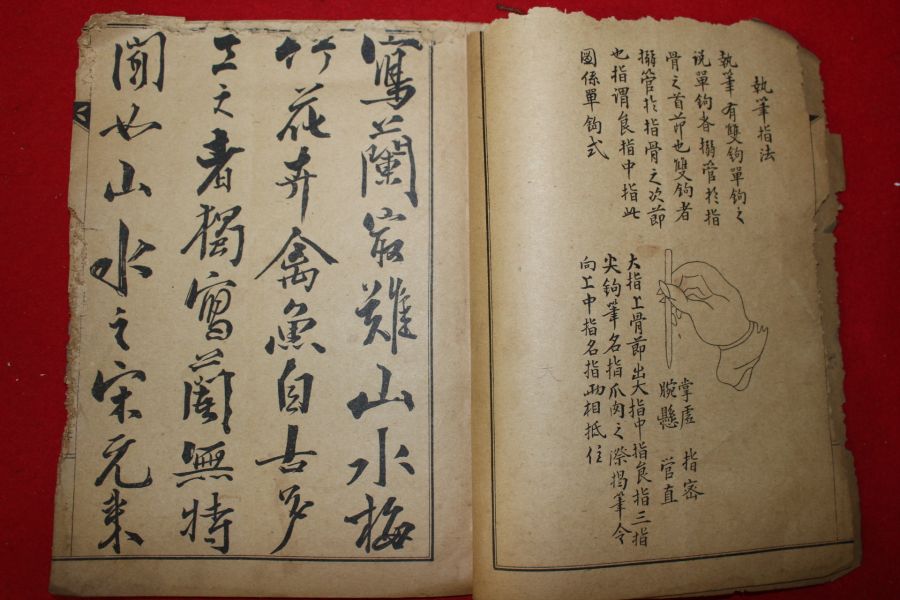 執筆指法
執筆有雙鉤單鉤之
說單鉤者搦管於指
骨之首節也雙鉤者
搦管於指骨之次節
也指謂食指中指此
圖係單鉤式
掌虛 指密
腕懸 管直
大指上骨節出大指中指食指三指
尖鉤筆名指爪肉之際揭筆令
向上中指名指兩相抵住
寫蘭最難山水梅
竹花卉禽魚自古多
工之者獨寫蘭無特
聞如山水之宋元來